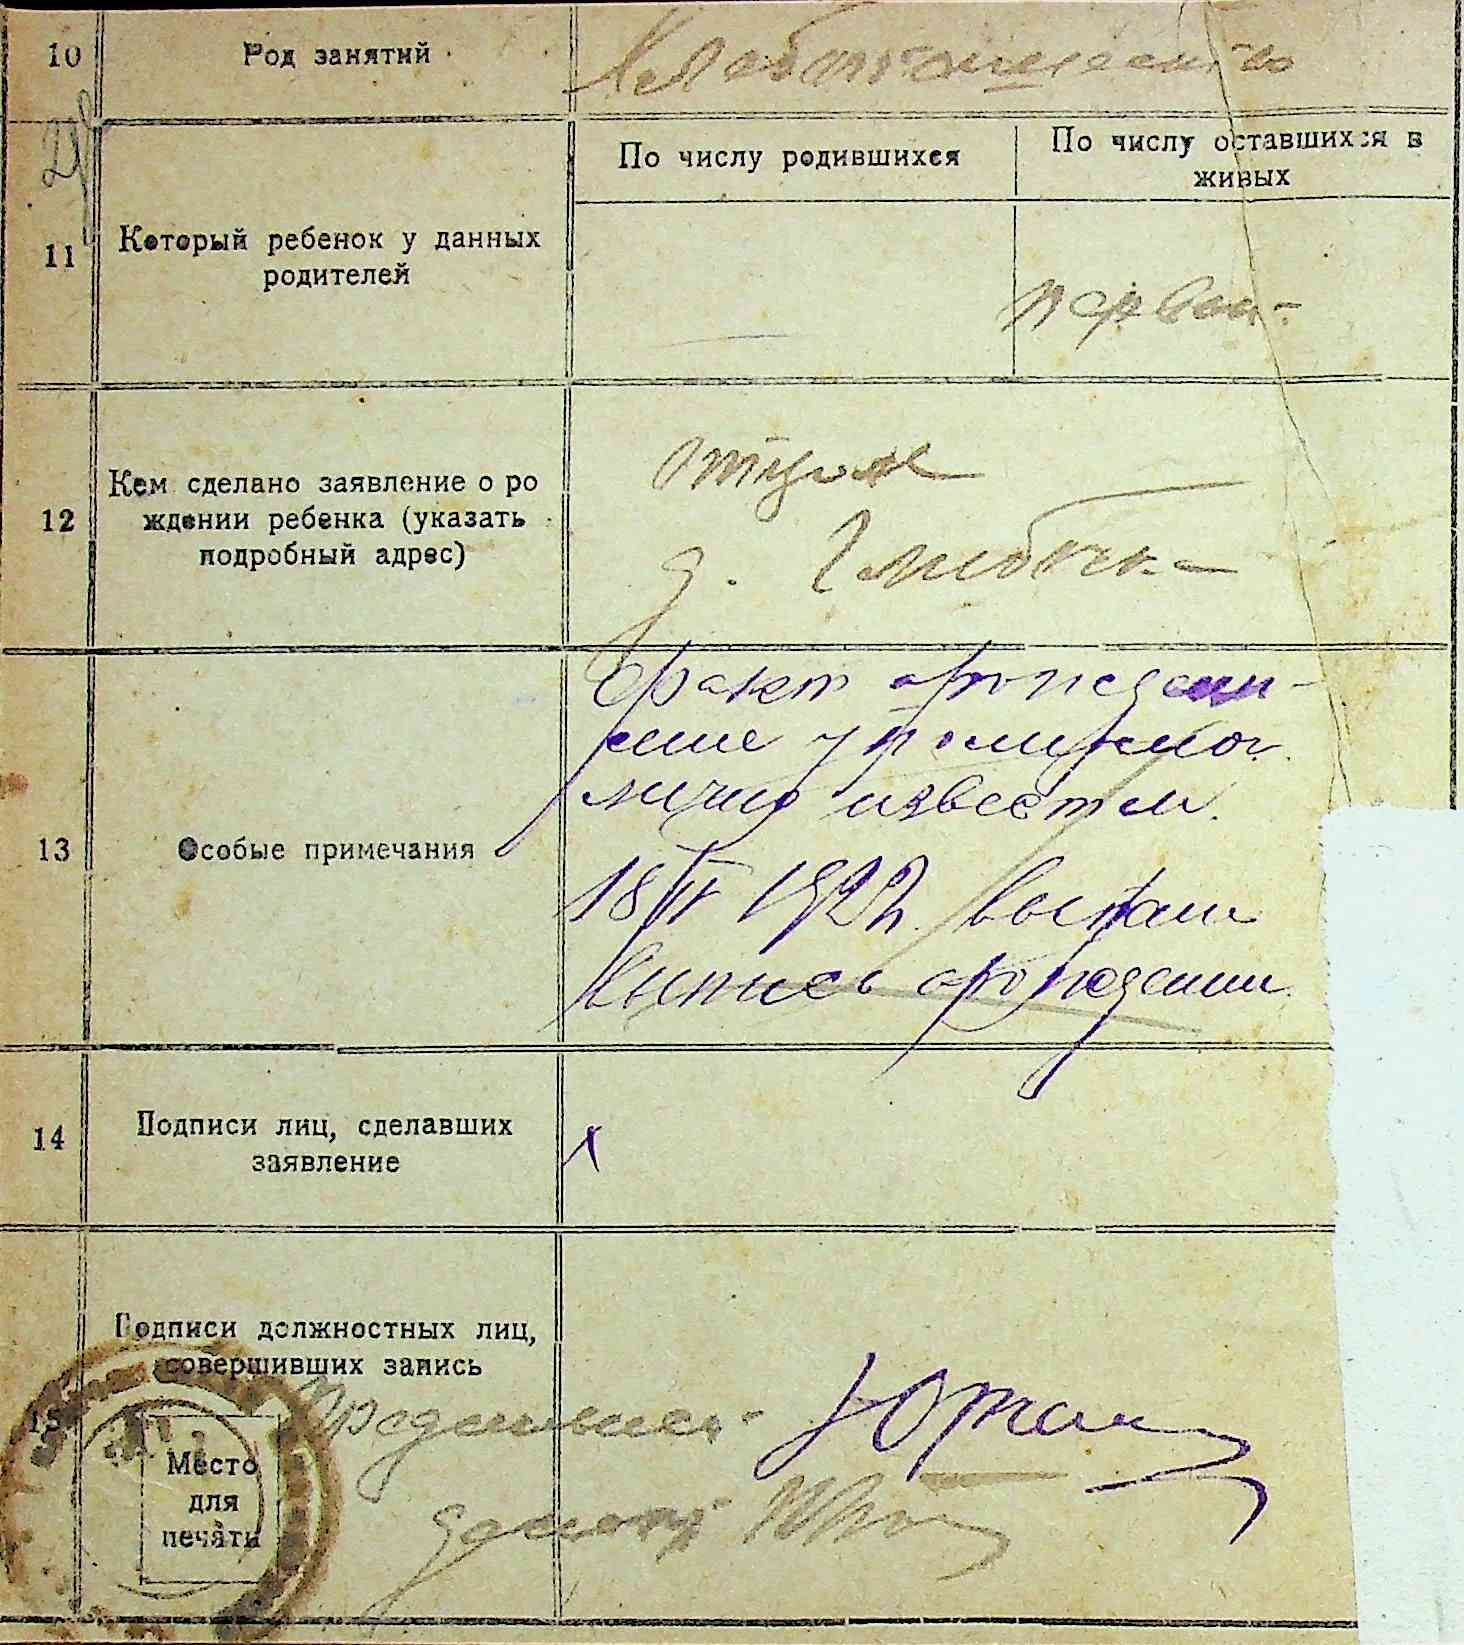 10 Род занятий Хлебопашество
По числу родившихся
По числу оставшихся в
живых
11 Который ребенок у данных
родителей
первый
12 Кем сделано заявление о ро
ждении ребенка (указать
подробный адрес)
отцом
д.
13 Особые примечания
Факт о рождении
лично известен.
18/II 1922 г. выдана
выпись о рождении
14 Подписи лиц, сделавших
заявление
15 Подписи должностных лиц,
совершивших запись
Место
для
печати